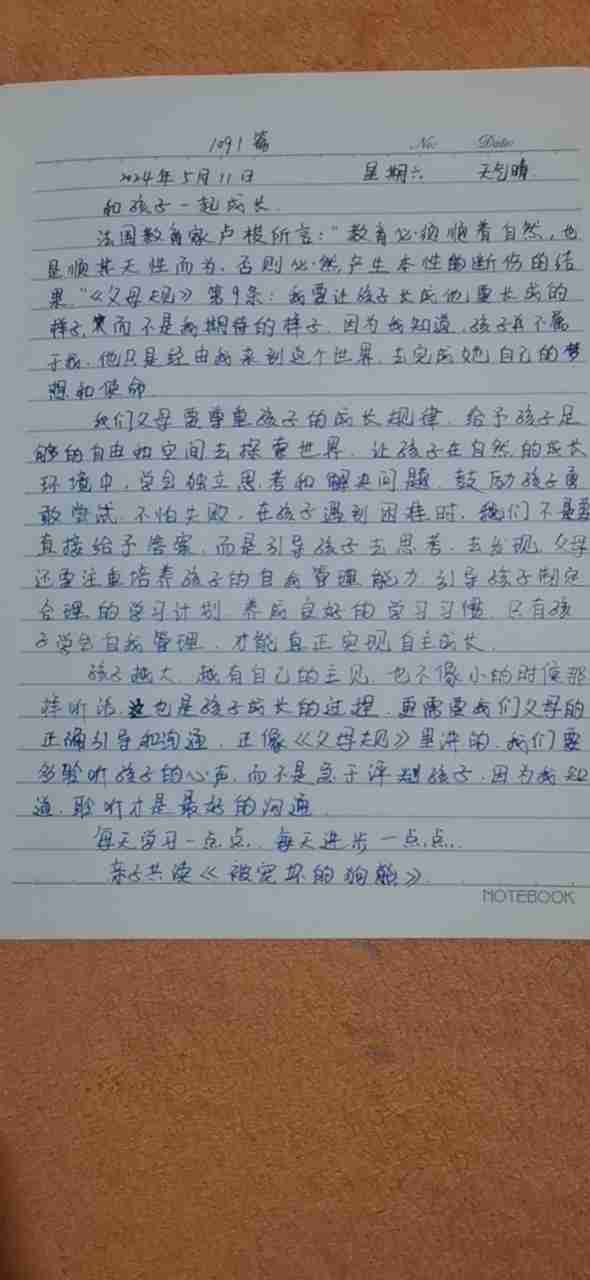 1091篇
No: Date:
2024年5月11日 星期六 天气晴
和孩子一起成长
法国教育家卢梭所言:“教育必须顺着自然,也
是顺其天性而为,否则必然产生本性的断伤的结
果。”《父母规》第9条:我要让孩子长成他要长成的
样子,而不是我期待的样子,因为我知道,孩子并不属
于我,他只是经由我来到这个世界,去完成她自己的梦
想和使命
我们父母要尊重孩子的成长规律,给予孩子足
够的自由和空间去探索世界,让孩子在自然的成长
环境中,学会独立思考和解决问题,鼓励孩子勇
敢尝试,不怕失败,在孩子遇到困难时,我们不是
直接给予答案,而是引导孩子去思考,去发现,父母
还要注重培养孩子的自我管理能力,引导孩子制定
合理的学习计划,养成良好的学习习惯,只有孩
子学会自我管理,才能真正实现自主成长.
孩子越大,越有自己的主见,也不像小的时候那
样听话,这也是孩子成长的过程,更需要我们父母的
正确引导和沟通,正像《父母规》里讲的,我们要
多聆听孩子的心声,而不是急于评判孩子,因为我知
道,聆听才是最好的沟通.
每天学习一点点,每天进步一点点..
亲子共读《被宠坏的狗熊》.
NOTEBOOK